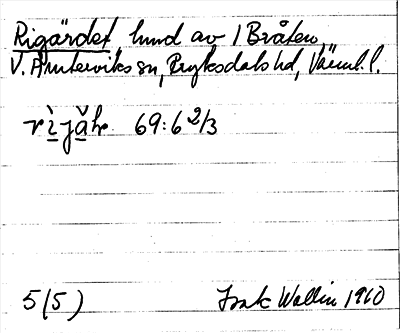 Rigärdet, hmd av 1 Bråten,
V. Ämterviks sn, Fryksdals hd, Värml. l.
rìjǎ̱h. 69:6 2/3
5(5) Isak Wallin 1910